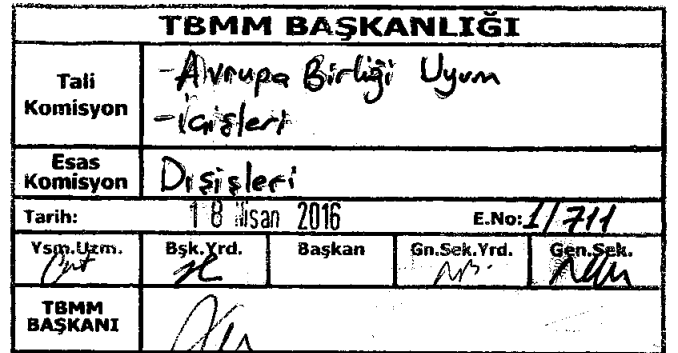 TBMM BAŞKANLIĞI
Tali Komisyon
-Avrupa Birliği Uyum
-içişleri
Esas Komisyon
Dışişleri
Tarih: 18 Nisan 2016 E.No: 1/711
Ysm.Uzm. Bşk.Yrd. Başkan Gn.Sek.Yrd. Gen.Sek.
TBMM BAŞKANI